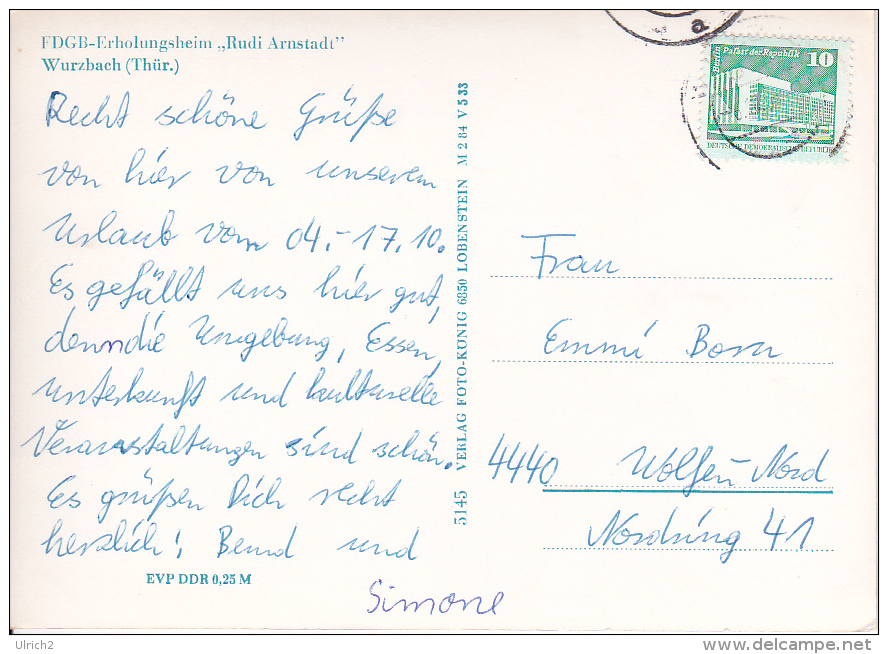 FDGB-Erholungsheim „Rudi Arnstadt”
Wurzbach (Thür.)
Recht schöne Grüße
von hier von unserem
Urlaub vom 04.-17.10.
Es gefällt uns hier gut,
denn die Umgebung, Essen,
Unterkunft und kulturelle
Veranstaltungen sind schön.
Es grüßen Dich recht
herzlich! Bernd und
Simone
EVP DDR 0,25 M
5145 VERLAG FOTO-KÖNIG 6850 LOBENSTEIN M 2 84 V 5 33
a
Palast der Republik
10
DEUTSCHE DEMOKRATISCHE REPUBLIK
Frau
Emmi Born
4440 Wolfen-Nord
Nordring 41
Ulrich2
www.delcampe.net